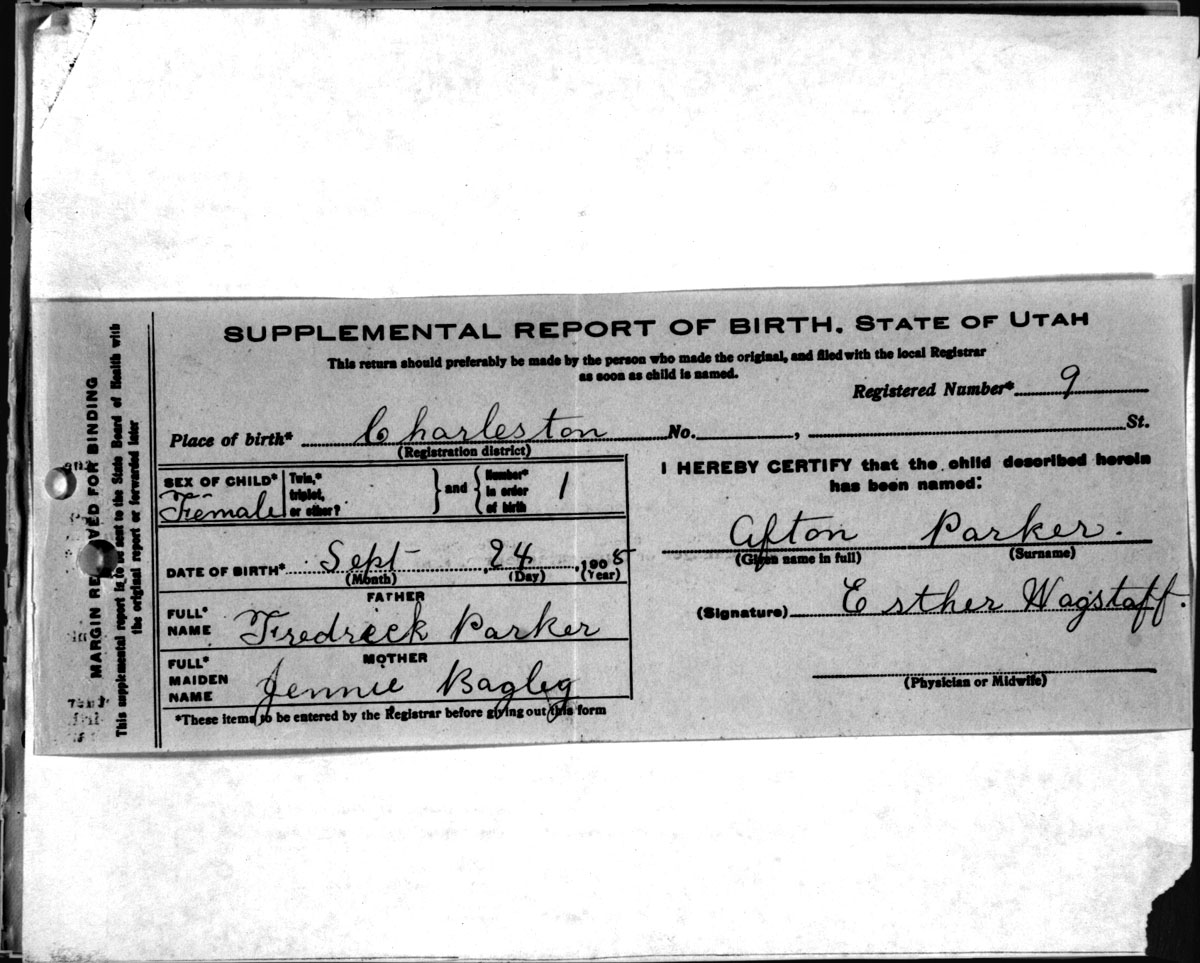 SUPPLEMENTAL REPORT OF BIRTH. STATE OF UTAH
This return should preferably be made by the person who made the original, and filed with the local Registrar
as soon as child is named.
Registered Number* 9
Place of birth* Charleston No. , St.
(Registration district)
SEX OF CHILD* Female
Twin,* triplet, or other?
and
Number* in order of birth 1
DATE OF BIRTH* Sept 24, 1908
(Month) (Day) (Year)
FATHER
FULL* NAME Fredrick Parker
MOTHER
FULL* MAIDEN NAME Jennie Bagley
*These items to be entered by the Registrar before giving out this form
I HEREBY CERTIFY that the child described herein
has been named:
Afton Parker.
(Given name in full) (Surname)
(Signature) Esther Wagstaff.
(Physician or Midwife)
MARGIN RESERVED FOR BINDING
This supplemental report is to be sent to the State Board of Health with
the original report or forwarded later